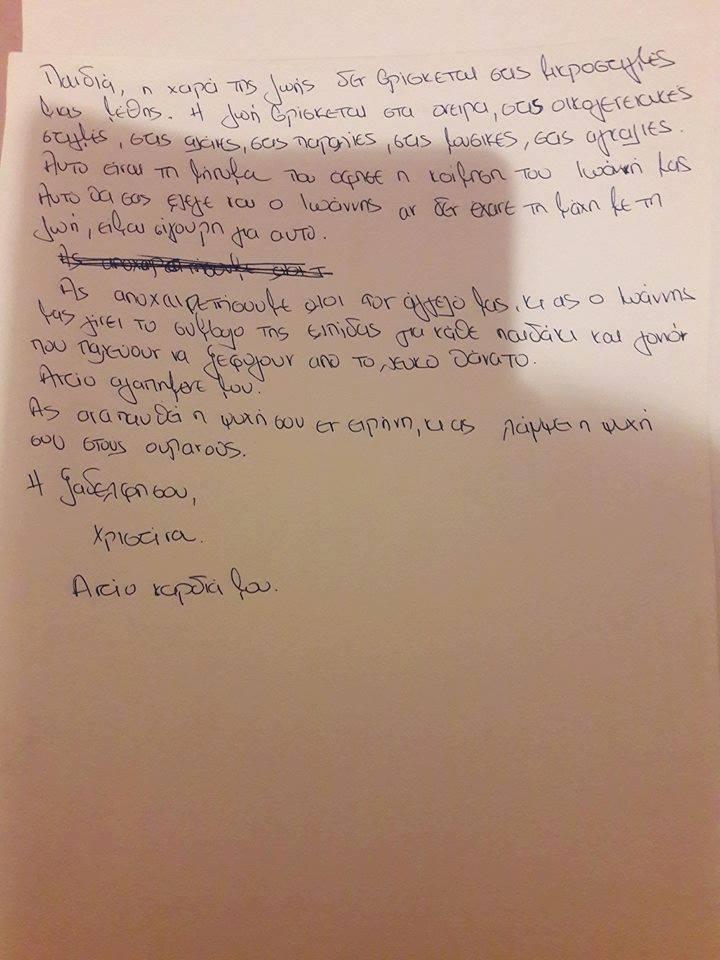 Παιδιά, η χαρά της ζωής δεν βρίσκεται στις μικροστιγμές
μιας μέθης. Η ζωή βρίσκεται στα όνειρα, στις οικογενειακές
στιγμές, στις αγάπες, στις παραλίες, στις μουσικές, στις αγκαλιές.
Αυτο είναι τη μήνυμα που άφησε η κοίμηση του Ιωάννη μας
Αυτο θα σας έλεγε και ο Ιωάννης αν δεν έχανε τη μάχη με τη
ζωή, είμαι σίγουρη για αυτο.
Ας αποχαιρετήσουμε όλοι τον άγγελό μας, κι ας ο Ιωάννης
μας γίνει το σύμβολο της ελπίδας για κάθε παιδάκι και γονιό
που παλεύουν να ξεφύγουν από το λευκο θάνατο.
Αντίο αγαπημένε μου.
Ας αναπαυθεί η ψυχή σου εν ειρήνη, κι ας λάμψει η ψυχή
σου στους ουρανούς.
Η ξαδέλφη σου,
Χριστίνα.
Αντίο καρδιά μου.